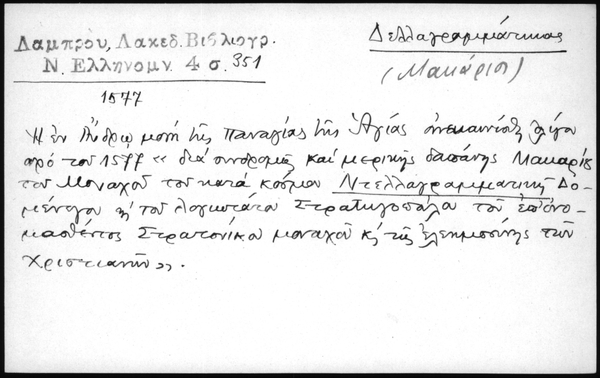 Λαμπρου, Λακεδ. Βιβλιογρ.
Ν. Ελληνομν. 4 σ. 351
Δελλαγραμμάτικας
(Μακάριος)
1577
Ἡ ἐν Ἄνδρῳ μονὴ τῆς Παναγίας τῆς Ἁγίας ἀνεκαινίσθη λίγο
πρὸ τοῦ 1577 « διὰ συνδρομῆς καὶ μερικῆς δαπάνης Μακαρίου
τοῦ Μοναχοῦ τοῦ κατὰ κόσμον Ντελλαγραμματικῆ Δο-
μένεγου κ' τοῦ λογιωτάτου Στρατηγοπούλου τοῦ ἐπονο-
μασθέντος Στρατονίκου μοναχοῦ κ' τῆς ἐλεημοσύνης τῶν
Χριστιανῶν ».